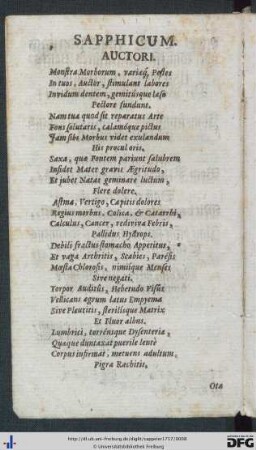 SAPPHICUM.
AUCTORI.
Monstra Morborum, variæq; Pestes
In tuos, Auctor, stimulant labores
Invidum dentem, gemitúsque læso
Pectore fundunt.
Nam tua quod sit reparatus Arte
Fons salutaris, calamóque pictus
Jam sibi Morbus videt exulandum
His procul oris.
Saxa, quæ Fontem pariunt salubrem
Insidet Mater gravis Ægritudo,
Et jubet Natas geminare luctum,
Flere dolere.
Astma, Vertigo, Capitis dolores
Regius morbus, Colica, & Catarrhi,
Calculus, Cancer, rediviva Febris,
Pallidus Hydrops.
Debili fractus stomacho Appetitus,
Et vaga Arthritis, Scabies, Paresis
Mæsta Chlorosis, nimiique Menses
Sive negati.
Torpor Auditûs, Hebetudo Visûs
Vellicans ægrum latus Empyema
Sive Pleuritis, sterilisque Matrix
Et Fluor albus.
Lumbrici, torrénsque Dysenteria,
Quæque duntaxat puerile leutè
Corpus infirmat, metuens adultum,
Pigra Rachitis,
Ota
http://dl.ub.uni-freiburg.de/diglit/sapponier1717/0008
© Universitätsbibliothek Freiburg
DFG